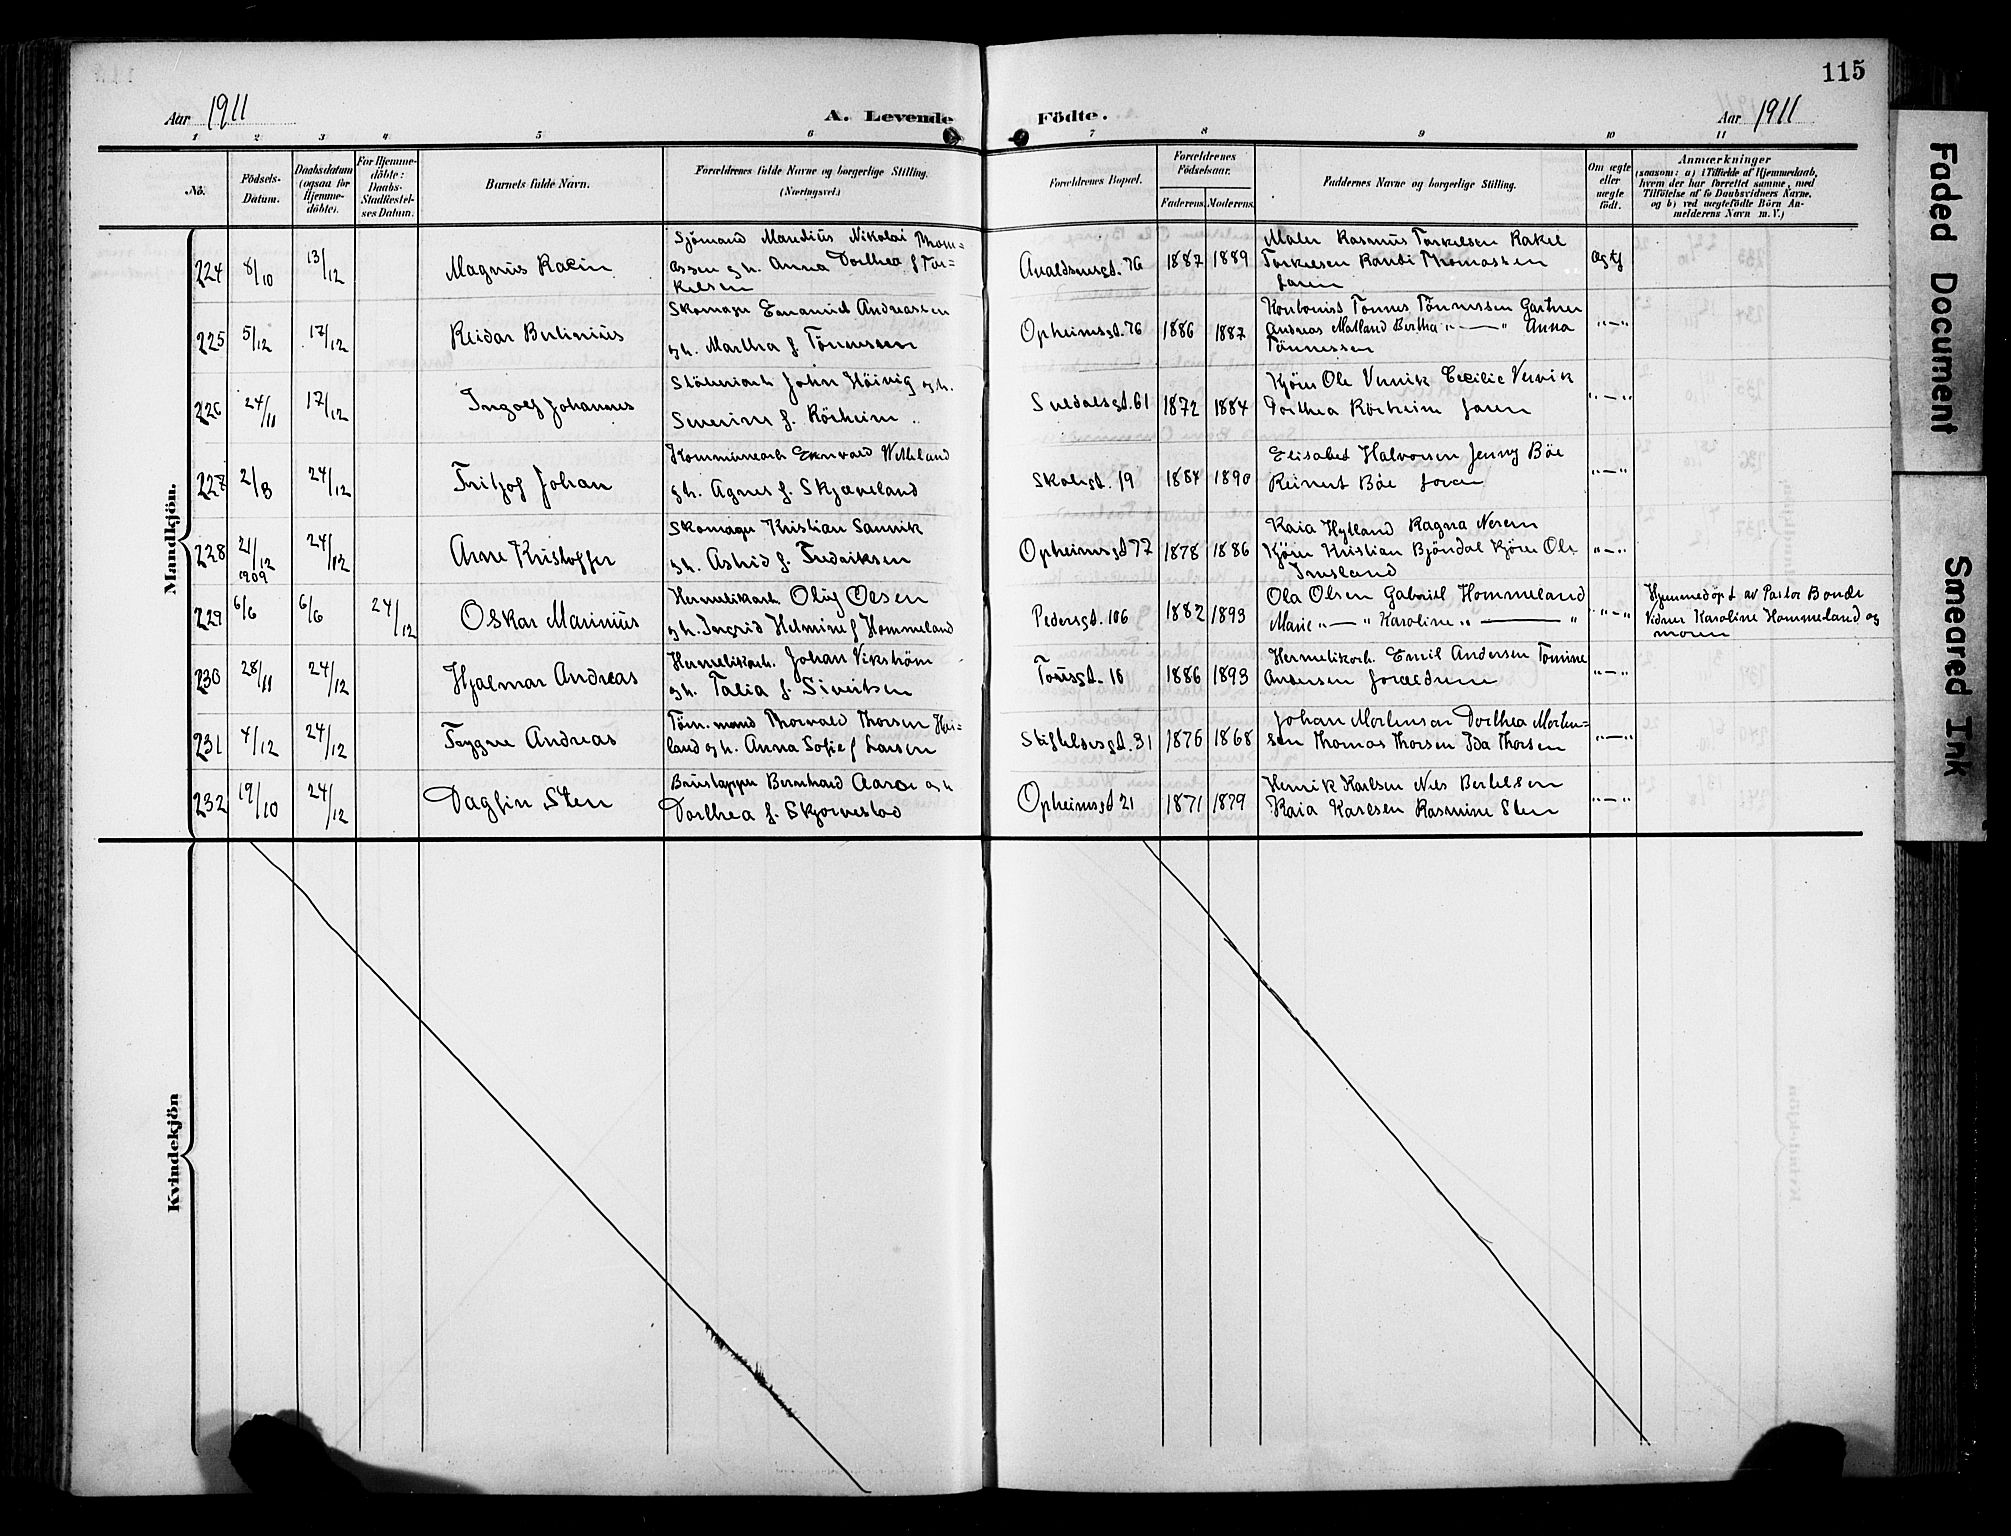 115
Aar 1911
A. Levende Födte.
Aar 1911
1 2 3 4 5 6 7 8 9 10 11
No.
Födsels-
Datum.
Daabsdatum
(ogsaa for
Hjemme-
döbte).
For Hjemme-
döbte:
Daabs-
Stadfæstel-
ses Datum.
Barnets fulde Navn.
Forældrenes fulde Navne og borgerlige Stilling.
(Næringsvei.)
Forældrenes Bopæl.
Forældrenes
Födselsaar.
Faderens. Moderens.
Faddernes Navne og borgerlige Stilling.
Om ægte
eller
uægte
födt.
Anmærkninger
(saasom: a) i Tilfælde af Hjemmedaab,
hvem der har forrettet samme, med
Tilföielse af to Daabsvidners Navne,
og b) ved uægtefödte Börn An-
melderens Navn m. V.)
Mandkjön.
224 8/10 13/12
Magnus
Sjömand Maredius Nikolai Thom-
assen g.h. Anna Dorthea f Tor-
kelsen
Avaldsnesgd. 76 1887 1889
Maler Rasmus Torkelsen Rakel
Torkelsen Randi Thomassen
Faren
Ægte
225 5/12 17/12
Reidar Berlinius
Skomager Emanuel Andreassen
g.h. Martha f Tönnessen
Opheimsgd. 76 1886 1887
Tönnes Tönnessen Gartner
Andreas Matland Bertha " — " Anna
Tönnessen
" — "
226 24/11 17/12
Ingolf Johannes
John Höivig g.h.
Severine f. Rörheim
Suldalsgd. 61 1872 1884
Kjörer Ole Vervik Cecilie Vervik
Dorthea Rörheim Faren
" — "
227 2/8 24/12
Fritjof Johan
Kommunearb. Wethland
g.h. Agnes f. Skjæveland
Skolegd. 19 1884 1890
Elisabet Halvorsen Jenny Böe
Reinert Böe Faren
" — "
228 21/12 24/12
Arne Kristoffer
Skomager Kristian Sannik
g.h. Astrid f. Fredriksen
Opheimsgd 72 1878 1886
Kaia Hylland Ragna
Kjörer Kristian Bjöndal Kjörer Ole
" — "
229 1909 6/6 6/6 24/12
Oskar Marinius
Hermetikarb. Oluf Olsen
g.h. Ingrid Helmine f Hommeland
Pedersgd. 106 1882 1893
Ola Olsen Gabriel Hommeland
Marie " — " Karoline " — "
" — "
Hjemmedöpt av Pastor Bonde
Vidner Karoline Hommeland og
moren
230 28/11 24/12
Hjalmar Andreas
Hermetikarb. Johan Vikström
g.h. Talia f. Sivertsen
Tousgd. 16 1886 1893
Hermetikarb. Emil Andersen Tomine
Andersen Forældrene
" — "
231 4/12 24/12
Trygve Andreas
Töm.mand Thorvald Thorsen Hei-
land g.h. Anna Sofie f Larsen
Stiftelsesgd. 31 1876 1868
Johan Mortensen Dorthea Morten-
sen Thomas Thorsen Ida Thorsen
" — "
232 19/10 24/12
Dagfin Sten
Bernhard Aarre g.h
Dorthea f. Skjörvestad
Opheimsgd 21 1871 1879
Henrik Karlsen Nils Bertelsen
Kaia Karlsen Rasmine Sten
" — "
Kvindekjön
Faded Document
Smeared Ink